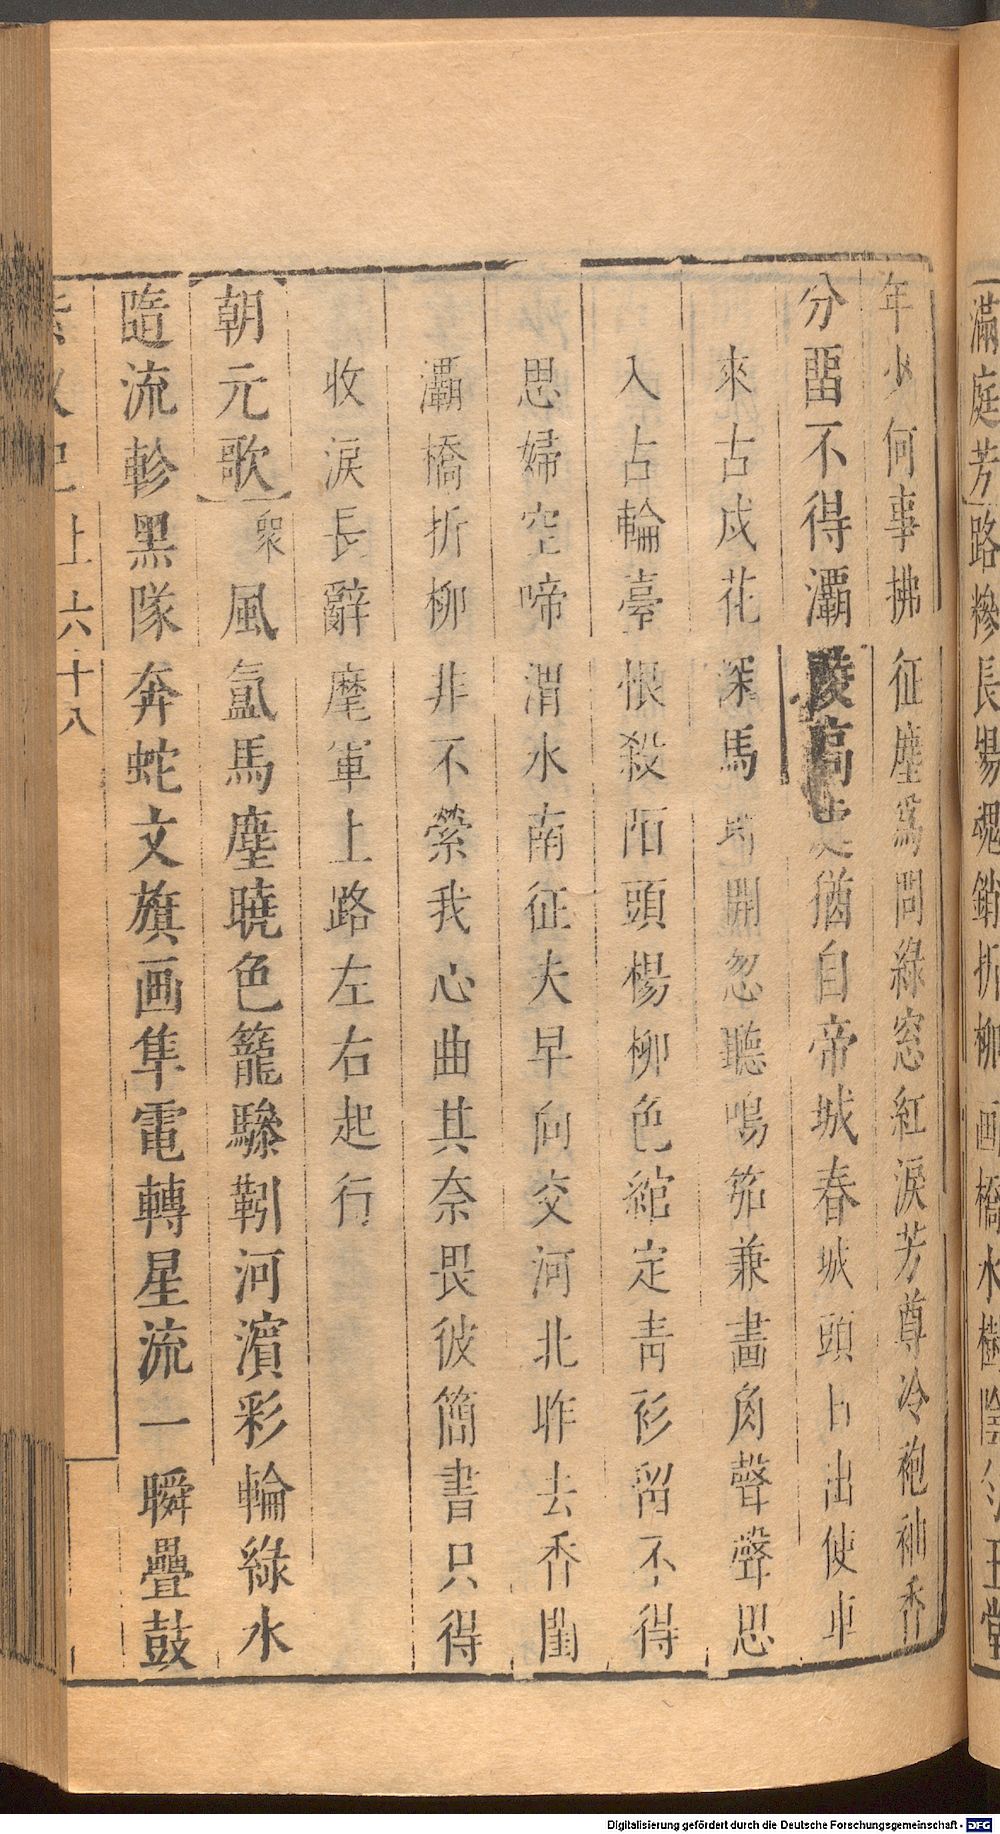 滿庭芳路㯽長楊魂銷折柳画橋水樹陰分玉堂
年少何事拂征塵爲問綠窓紅淚芳尊冷袍袖香
分畱不得灞陵高處猶自帝城春城頭日出使車
來古戍花深馬埓開忽聽鳴笳兼畫角聲聲思
入占輪臺恨殺陌頭楊柳色綰定靑衫留不得
思婦空啼渭水南征夫早向交河北昨去香閨
灞橋折柳非不縈我心曲其奈畏彼簡書只得
收淚長辭麾軍上路左右起行
朝元歌衆風氲馬塵曉色籠驂靷河濱彩輪綠水
隨流軫黑隊奔蛇文旗画隼電轉星流一瞬疊鼓
紫釵記上六十八
Digitalisierung gefördert durch die Deutsche Forschungsgemeinschaft - DFG